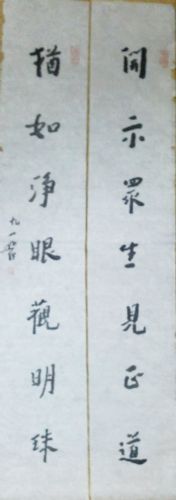 開示眾生見正道
猶如淨眼觀明珠